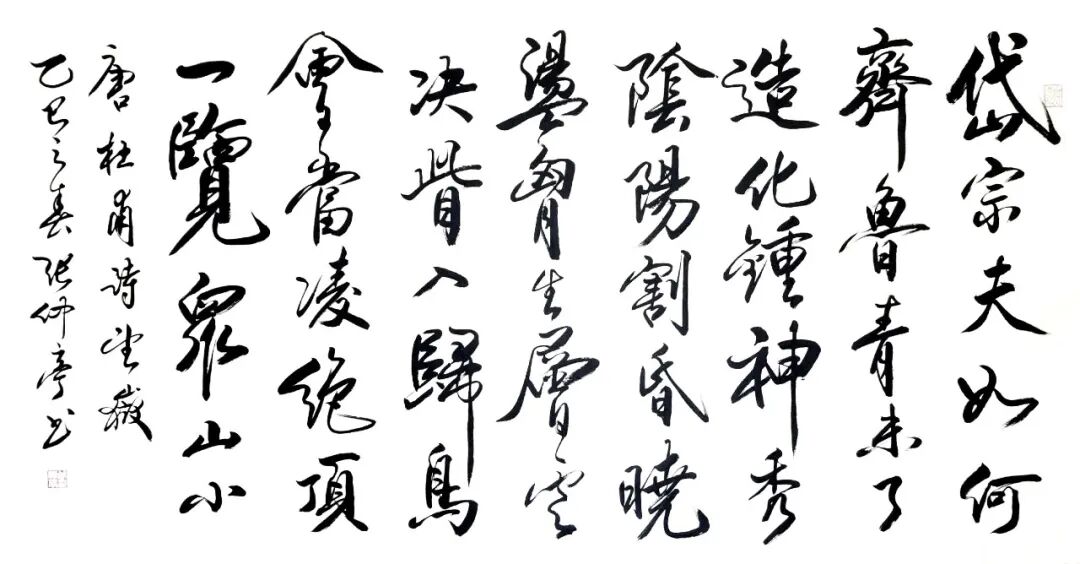 岱宗夫如何
齊魯青未了
造化鍾神秀
陰陽割昏曉
盪胷生層雲
决眥入歸鳥
會當凌絶頂
一覽眾山小
唐杜甫詩望嶽
乙巳之春張仲亭書